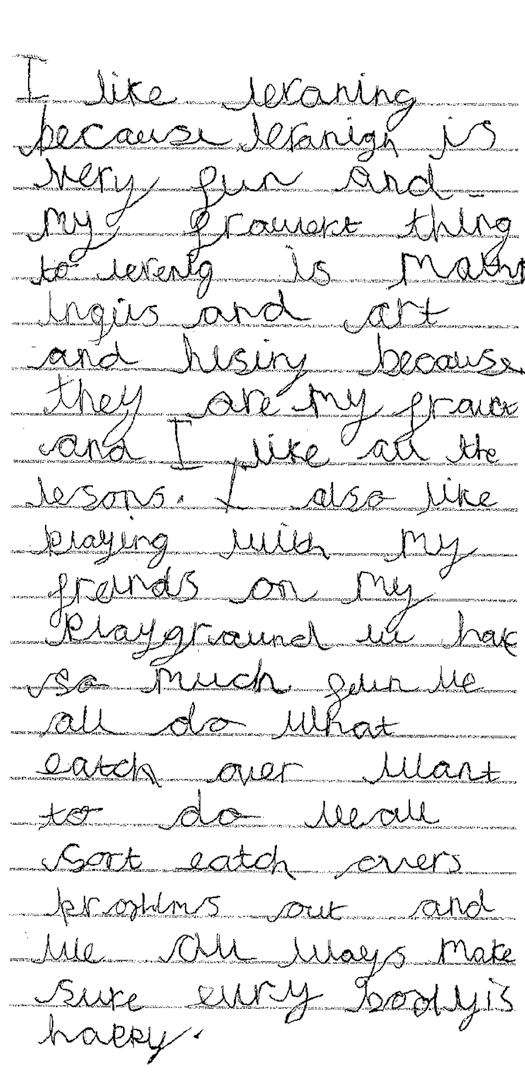 I like leraning
because leranign is
very fun and
my frauvert thing
to lerenig is maths
Inglis and art
and hisiry because
they are my fravet
and I like all the
lesons. I also like
playing with my
freinds on my
playground we hav
so much fun we
all do what
eatch over want
to do we all
sort eatch overs
problms out and
we all ways make
sure evry body is
happy.